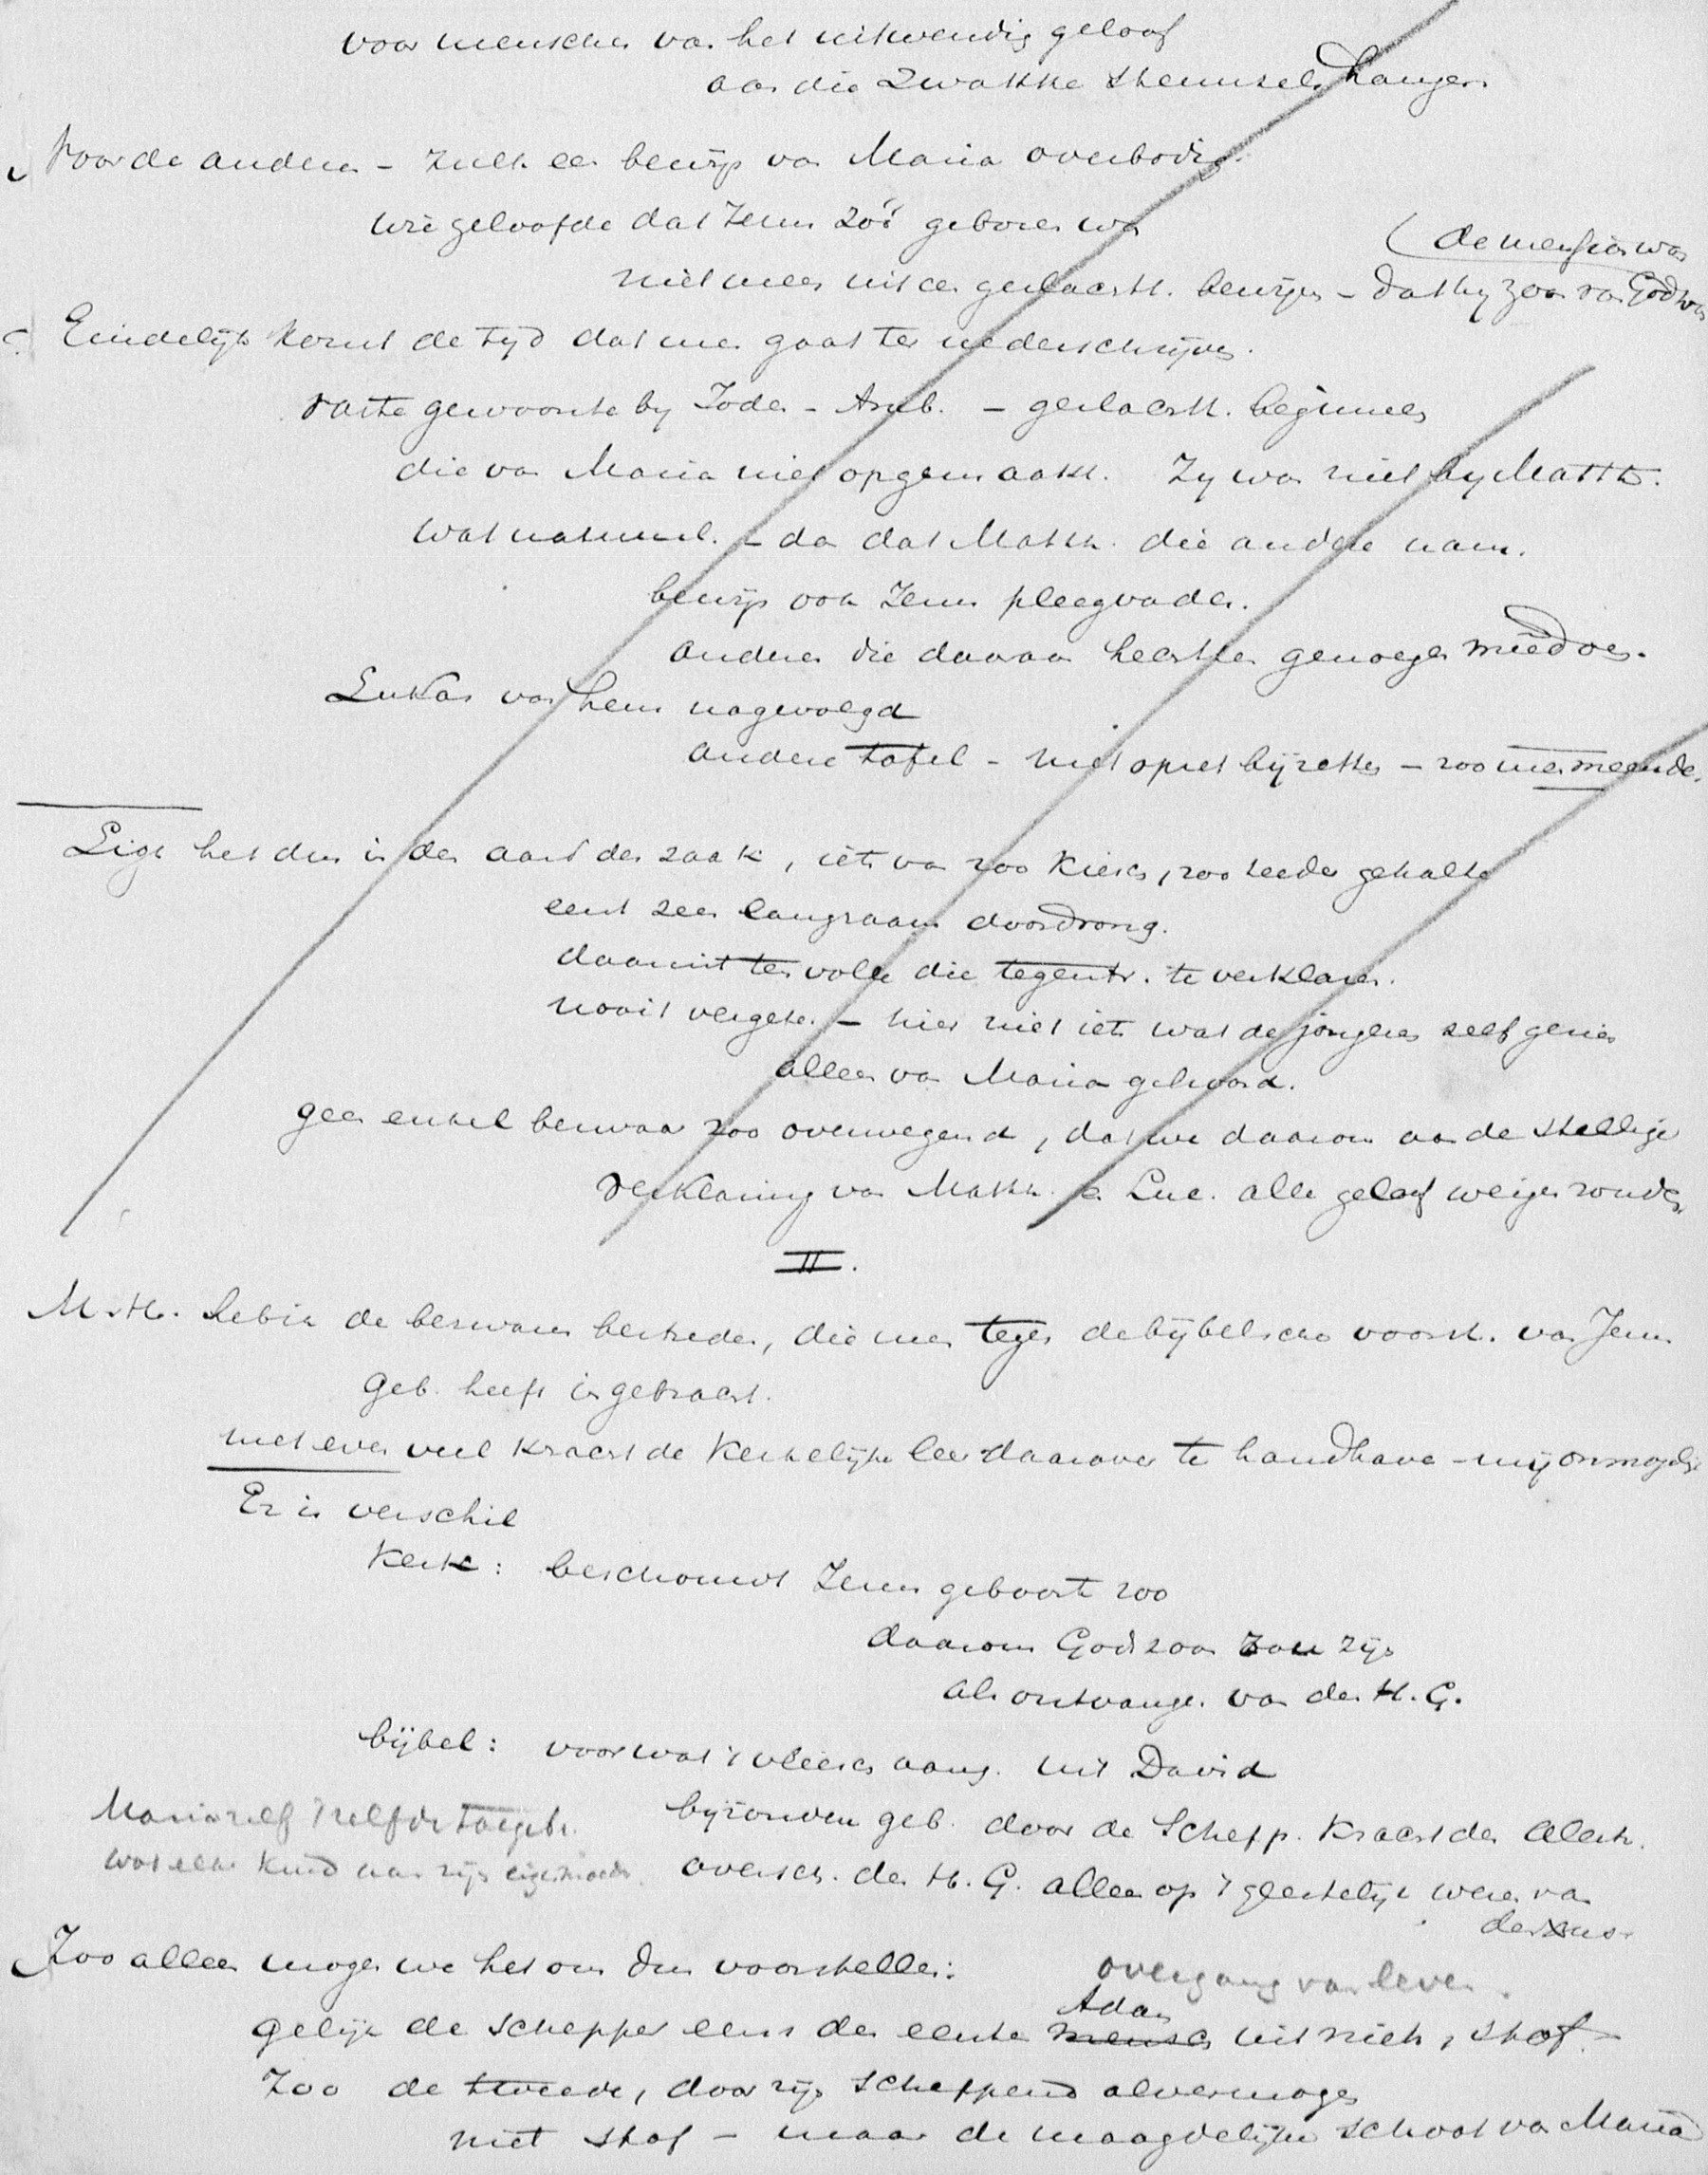 voor menschen van het uitwendig geloof
aan die zwakke stemsels hangen
Voor de anderen - zulk een bewijs van Maria overbodig.
wie geloofde dat Jezus zóó geboren was
(de messias was
niet meer uit een geslachtl. bewijzen - dat hy zoon van God was
Eindelijk komt de tyd dat men gaat ter nederschrijven.
vaste gewoonte by Joden - Arab. - geslachtl. beginnen
die van Maria niet opgemaakt. Zy was niet by Matth.
Wat natuurl. - dan dat Matth. die andere nam.
bewijs voor Jezus pleegvader.
anderen die daaraan hechtten genoegen meê doen.
Lukas van hem nagevolgd
andere tafel - niet opzet bijzetten - zoo men meende.
Ligt het dus in den aard der zaak, iets van zoo kiesch, zoo teeder gehalte
eerst zeer langzaam doordrong.
daaruit ten volle die tegenstr. te verklaren.
nooit vergeten - hier niet iets wat de jongeren zelf gezien
alleen van Maria gehoord.
geen enkel bezwaar zoo overwegend, dat we daarom aan de stellige
verklaring van Matth. en Luc. alle geloof weigeren zouden
II.
M. H. Heb ik de bezwaren bestreden, die men tegen de bijbelsche voorst. van Jezus
geb. heeft ingebracht.
met even veel kracht de kerkelijke leer daarover te handhaven - mij onmogelijk
Er is verschil
Kerk: beschouwt Jezus geboorte zoo
daarom Gods zoon zou zijn
als ontvangen van den H. G.
bijbel: voor wat 't vleesch aang. uit David
bijzondere geb. door de Schepp. kracht des Allerh.
Maria zelf 't zelfde toegebr.
wat elk kind aan zijn eigen moeder.
oversch. des H. G. alleen op 't geestelijk wezen van
den zoon
Zoo alleen mogen we het ons dus voorstellen:
overgang van leven.
Adam
gelijk de schepper eens den eerste mensch uit niets, stof
Zoo de tweede, door zijn scheppend alvermogen
niet stof - maar de maagdelijke schoot van Maria